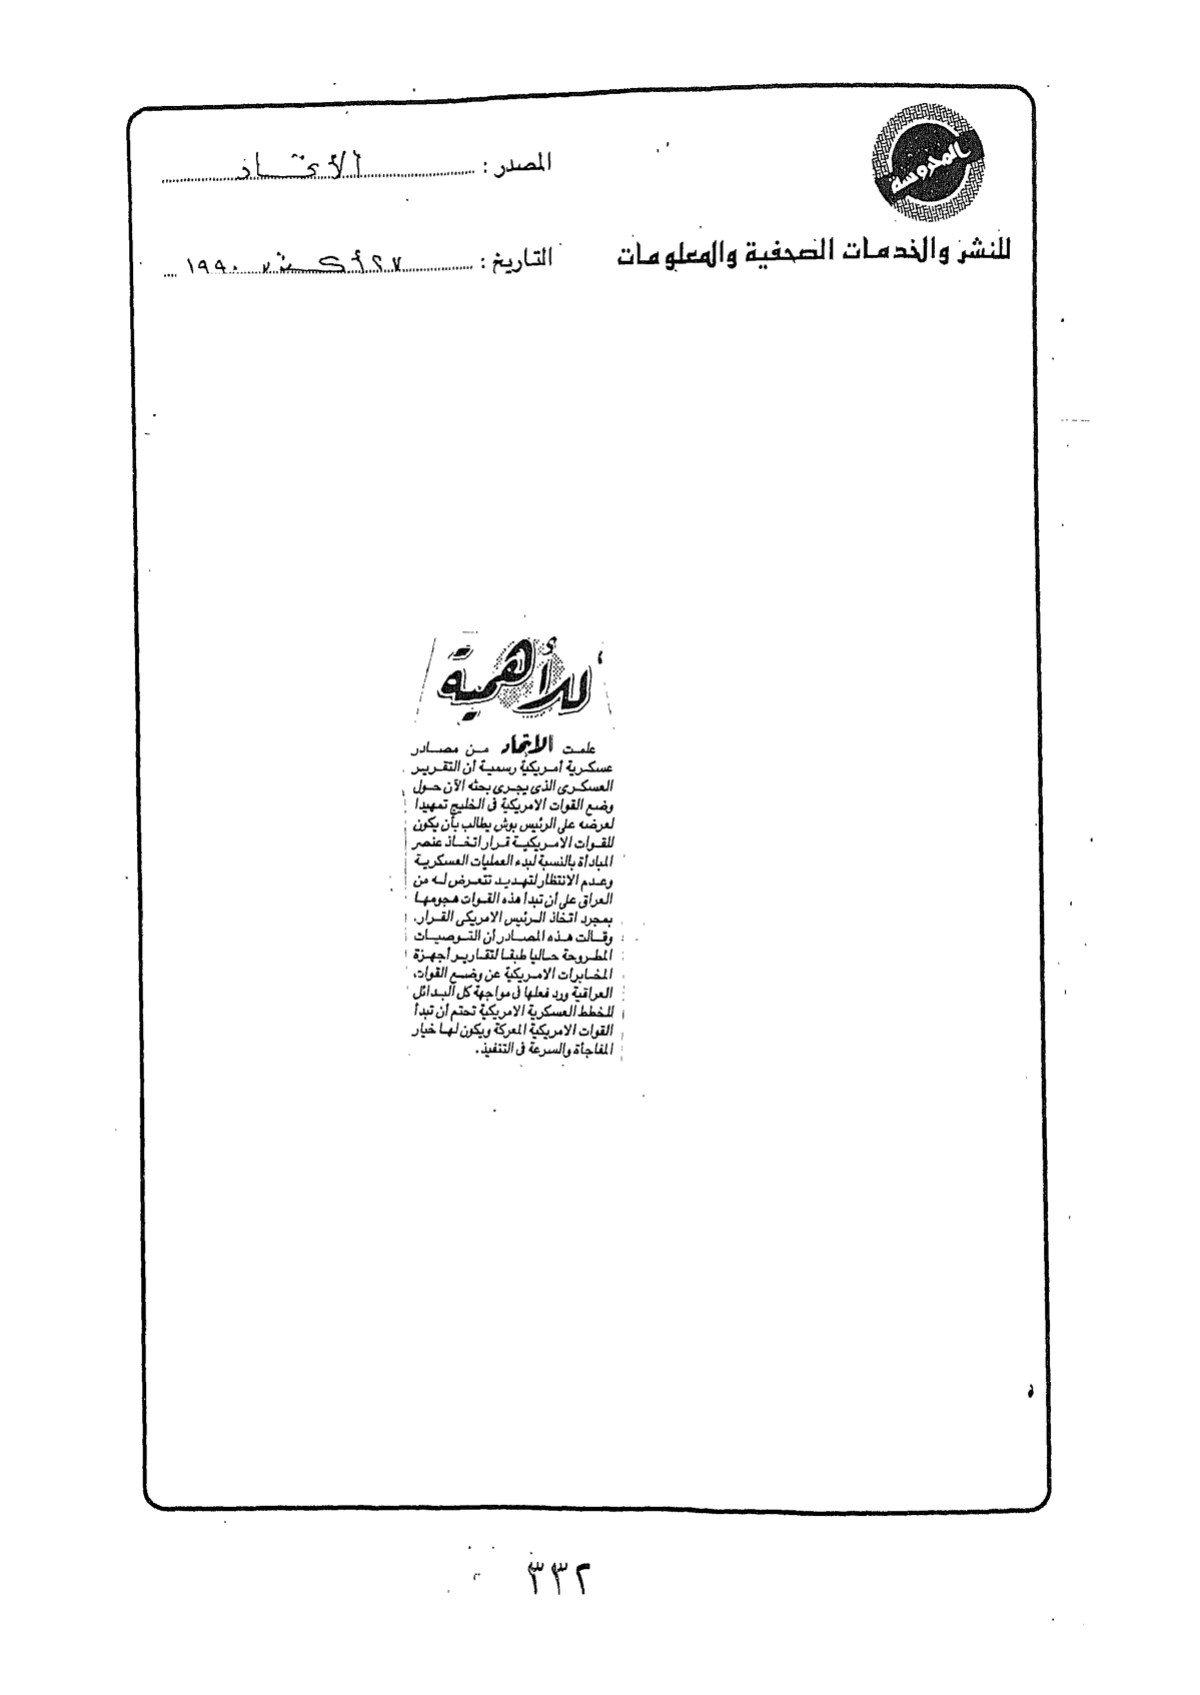 المحروسة
للنشر والخدمات الصحفية والمعلومات
المصدر : الاتحاد
التاريخ : ٢٧ أكتوبر ١٩٩٠
للأهمية
علمت الاتحاد من مصادر
عسكرية أمريكية رسمية أن التقرير
العسكرى الذى يجرى بحثه الآن حول
وضع القوات الامريكية فى الخليج تمهيدا
لعرضه على الرئيس بوش يطالب بأن يكون
للقوات الامريكية قرار اتخاذ عنصر
المبادأة بالنسبة لبدء العمليات العسكرية
وعدم الانتظار لتهديد تتعرض له من
العراق على أن تبدأ هذه القوات هجومها
بمجرد اتخاذ الرئيس الامريكى القرار.
وقالت هذه المصادر أن التوصيات
المطروحة حاليا طبقا لتقارير أجهزة
المخابرات الامريكية عن وضع القوات
العراقية ورد فعلها فى مواجهة كل البدائل
للخطط العسكرية الامريكية تحتم أن تبدأ
القوات الامريكية المعركة ويكون لها خيار
المفاجأة والسرعة فى التنفيذ.
٣٣٢